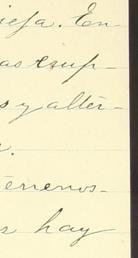 iega. En
as esup-
s y alter-
.
terrenos-
s hay